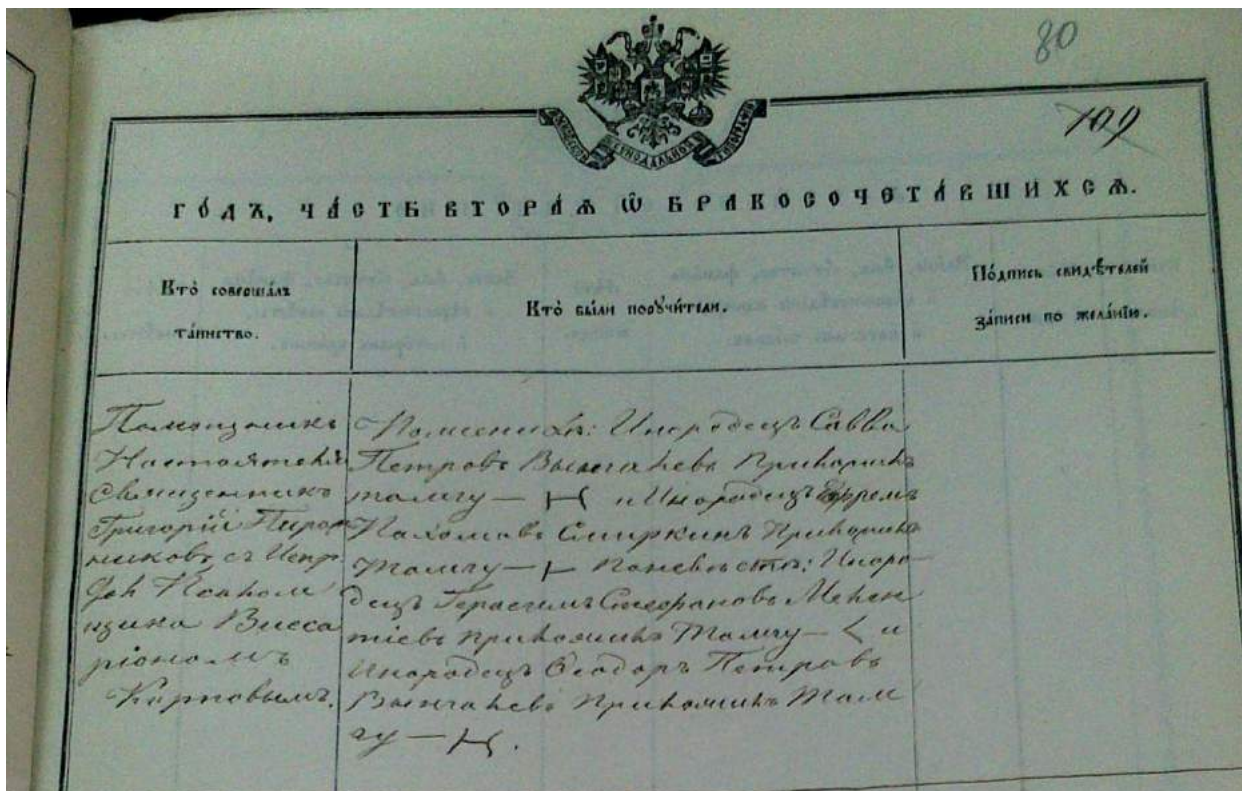 80
109
МОСКОВСКОЙ СѴНОДАЛЬНОЙ ТИПОГРАФІИ
ГО́ДЪ, ЧА́СТЬ ВТОРА́Ѧ Ѡ БРАКОСОЧЕТА́ВШИХСѦ.
Кто̀ соверша́лъ
та́инство.
Кто̀ бы́ли порꙋчи́тели.
По́дпись свидѣ́телей
за́писи по жела́нїю.
Помощникъ
Настоятеля
Священникъ
Григорій
никовъ съ
Псалом
щика Висса
ріономъ
Карповымъ.
По женихѣ: Инородецъ Савва
Петровъ приложилъ
тамгу — и Инородецъ Ефремъ
Пахомовъ Смиркинъ приложилъ
тамгу — По невѣстѣ: Иноро-
децъ Герасимъ Стефановъ
приложилъ тамгу — и
Инородецъ Ѳеодоръ Петровъ
приложилъ там
гу — .